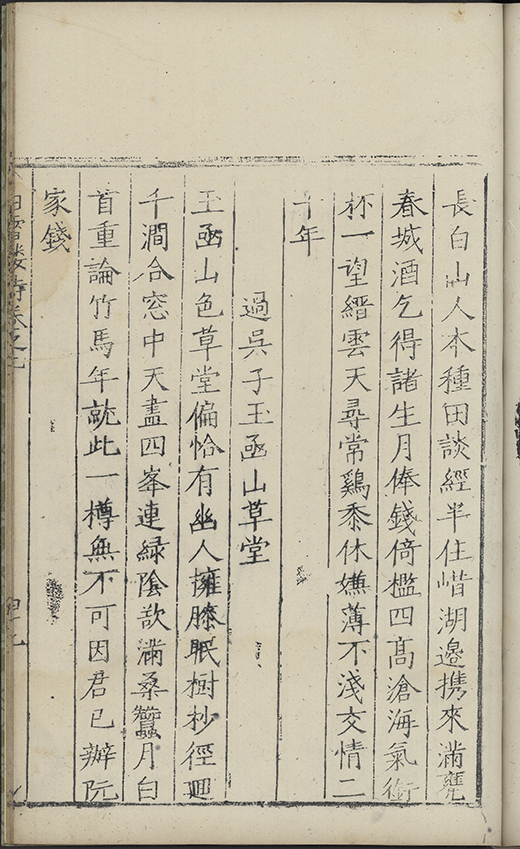 長白山人本種田談經半住㟭湖邊携來滿甕
春城酒乞得諸生月俸錢倚檻四高滄海氣銜
杯一望縉雲天尋常鷄黍休嫌薄不淺交情二
十年
過吳子玉亟山草堂
玉亟山色草堂偏恰有幽人擁膝眠樹杪徑迴
千澗合窓中天盡四峯連綠陰歆滿桑蠶月白
首重論竹馬年就此一樽無不可因君已辦阮
家錢
白雪樓詩卷之七